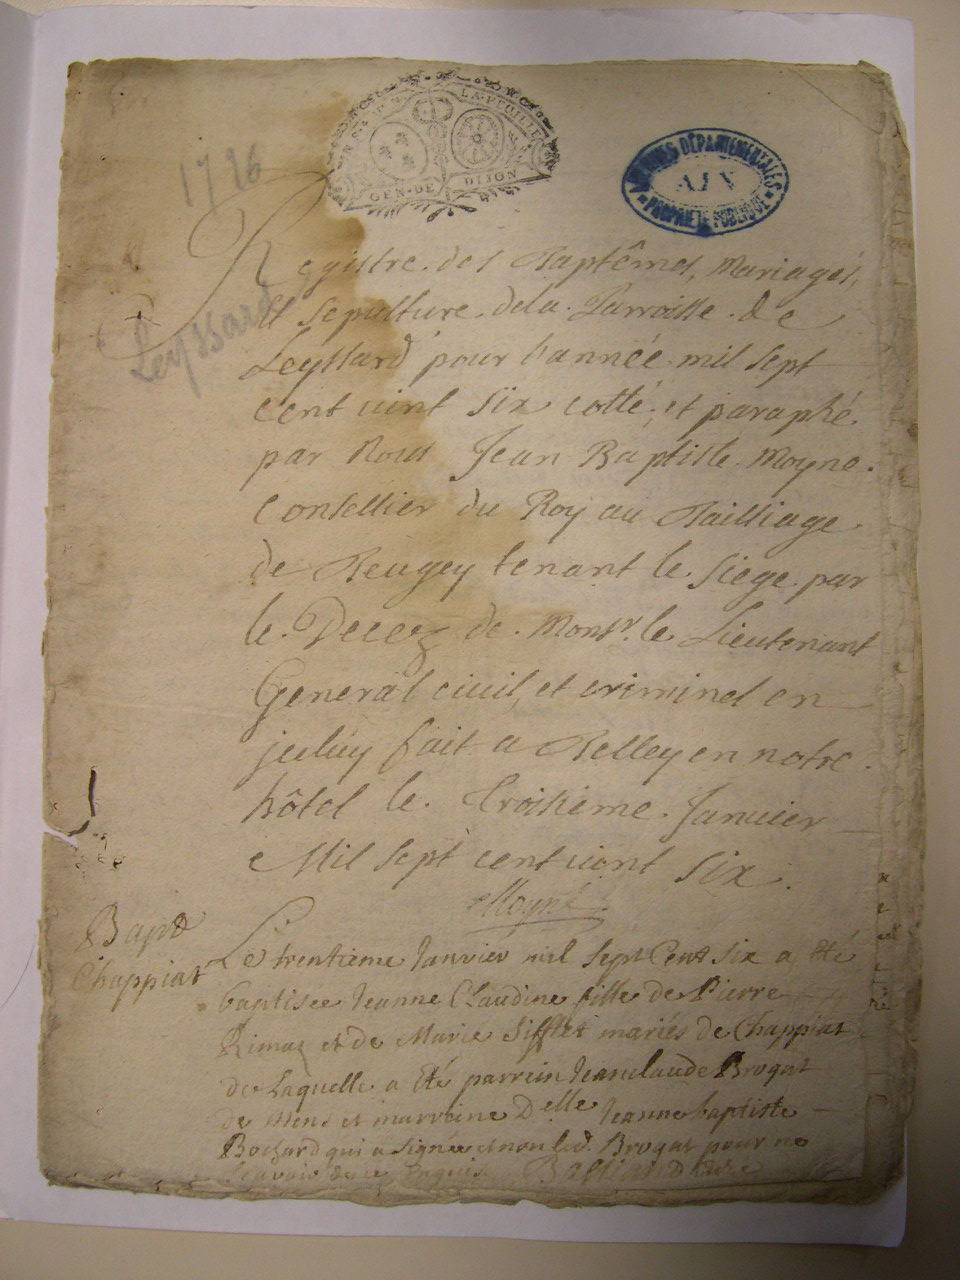 LA FEUILLE
GEN·DE DIJON
ARCHIVES DÉPARTEMENTALES
AIN
PROPRIÉTÉ PUBLIQUE
1726
Leyssard
Registre des Baptêmes, Mariages,
et sepulture dela Parroisse de
Leyssard pour l'année mil sept
cent vint six cotté, et paraphé
par Nous Jean Baptiste Moyne
Conseller du Roy au Bailliage
de Beugey tenant le siege par
le Decez de Monsr. le Lieutenant
General civil, et criminel en
jceluy fait a Belley en notre
hôtel le troisieme Janvier
Mil sept cent vint six.
Moyne
Bapt
Chappiat
Le trentieme Janvier mil sept Cent six a eté
baptisée Jeanne Claudine fille de Pierre
Rimaz et de Marie Sifflet mariés de Chappiat
de Laquelle a eté parrein Jeanclaude Brogat
de Mens et marreine Delle Jeanne baptiste
Bochard qui a signée et non led. Brogat pour ne
scavoir de ce Enquis. curé